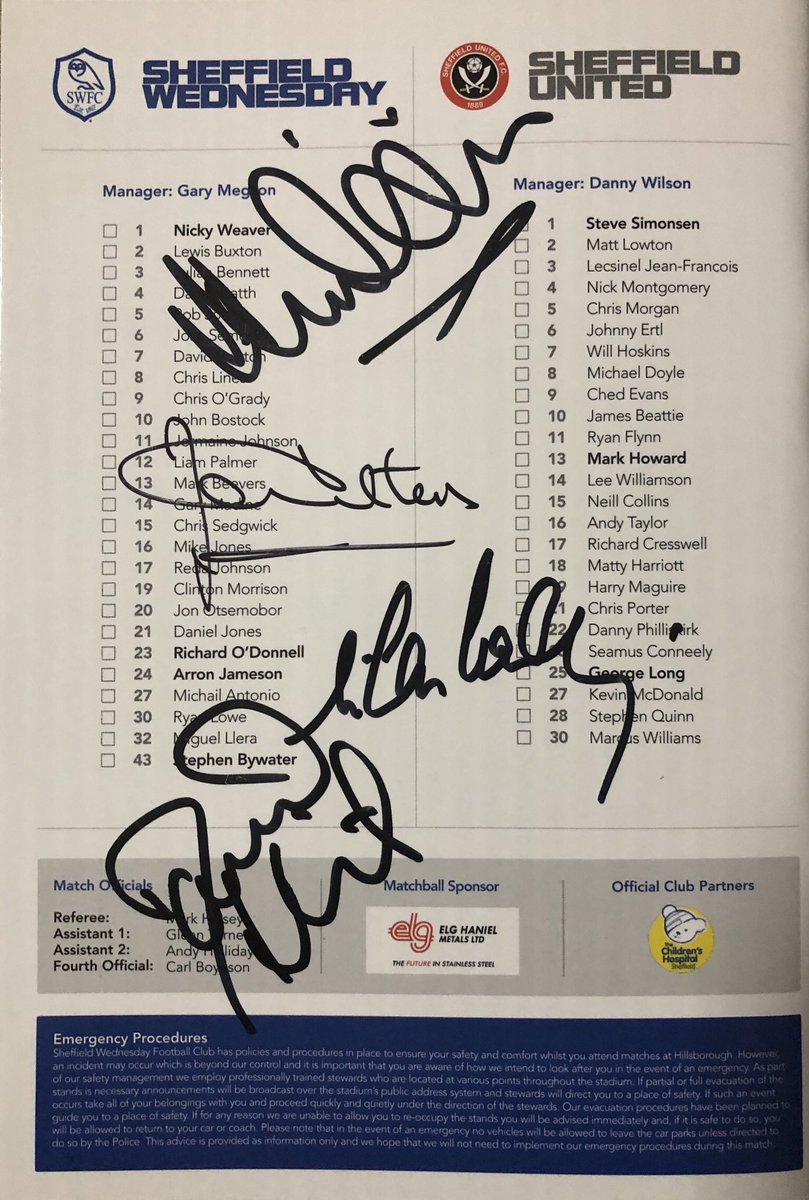 SWFC
SHEFFIELD
WEDNESDAY
Manager: Gary Megson
1 Nicky Weaver
2 Lewis Buxton
3 Julian Bennett
4 Danny Batth
5 Rob Jones
6 Jose Semedo
7 David Prutton
8 Chris Lines
9 Chris O'Grady
10 John Bostock
11 Jermaine Johnson
12 Liam Palmer
13 Mark Beevers
14 Gary Madine
15 Chris Sedgwick
16 Mike Jones
17 Reda Johnson
19 Clinton Morrison
20 Jon Otsemobor
21 Daniel Jones
23 Richard O'Donnell
24 Arron Jameson
27 Michail Antonio
30 Ryan Lowe
32 Miguel Llera
43 Stephen Bywater
SHEFFIELD UNITED F.C.
1889
SHEFFIELD
UNITED
Manager: Danny Wilson
1 Steve Simonsen
2 Matt Lowton
3 Lecsinel Jean-Francois
4 Nick Montgomery
5 Chris Morgan
6 Johnny Ertl
7 Will Hoskins
8 Michael Doyle
9 Ched Evans
10 James Beattie
11 Ryan Flynn
13 Mark Howard
14 Lee Williamson
15 Neill Collins
16 Andy Taylor
17 Richard Cresswell
18 Matty Harriott
19 Harry Maguire
21 Chris Porter
22 Danny Philliskirk
Seamus Conneely
25 George Long
27 Kevin McDonald
28 Stephen Quinn
30 Marcus Williams
Match Officials
Referee: Mark Halsey
Assistant 1: Glenn Turner
Assistant 2: Andy Halliday
Fourth Official: Carl Boyeson
Matchball Sponsor
elg ELG HANIEL
METALS LTD
THE FUTURE IN STAINLESS STEEL
Official Club Partners
The
Children's
Hospital
Sheffield
Emergency Procedures
Sheffield Wednesday Football Club has policies and procedures in place to ensure your safety and comfort whilst you attend matches at Hillsborough. However,
an incident may occur which is beyond our control and it is important that you are aware of how we intend to look after you in the event of an emergency. As part
of our safety management we employ professionally trained stewards who are located at various points throughout the stadium. If partial or full evacuation of the
stands is necessary announcements will be broadcast over the stadium's public address system and stewards will direct you to a place of safety. If such an event
occurs take all of your belongings with you and proceed quickly and quietly under the direction of the stewards. Our evacuation procedures have been planned to
guide you to a place of safety. If for any reason we are unable to allow you to re-occupy the stands you will be advised immediately and, if it is safe to do so, you
will be allowed to return to your car or coach. Please note that in the event of an emergency no vehicles will be allowed to leave the car parks unless directed to
do so by the Police. This advice is provided as information only and we hope that we will not need to implement our emergency procedures during this match.